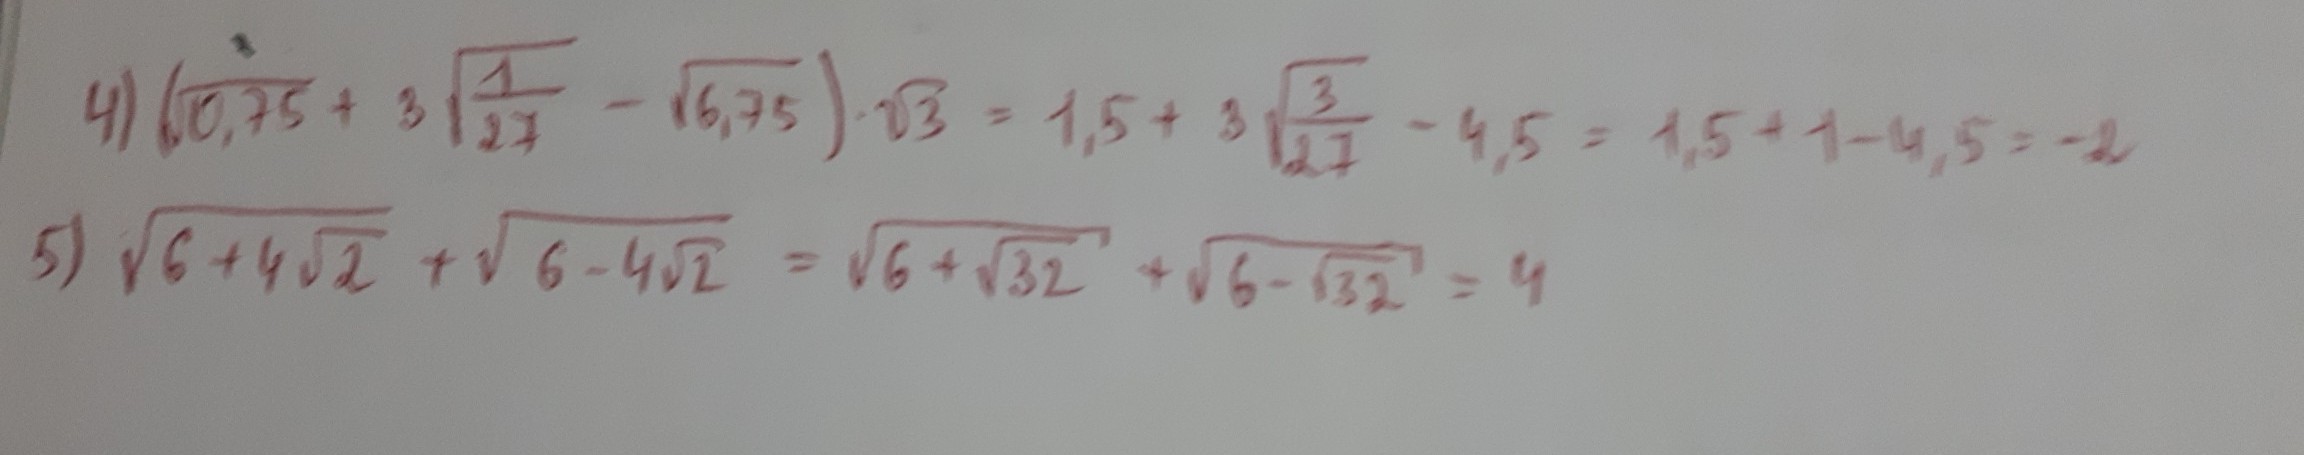 4) (√0,75 + 3√(1/27) - √6,75) · √3 = 1,5 + 3√(3/27) - 4,5 = 1,5 + 1 - 4,5 = -2
5) √(6 + 4√2) + √(6 - 4√2) = √(6 + √32) + √(6 - √32) = 4